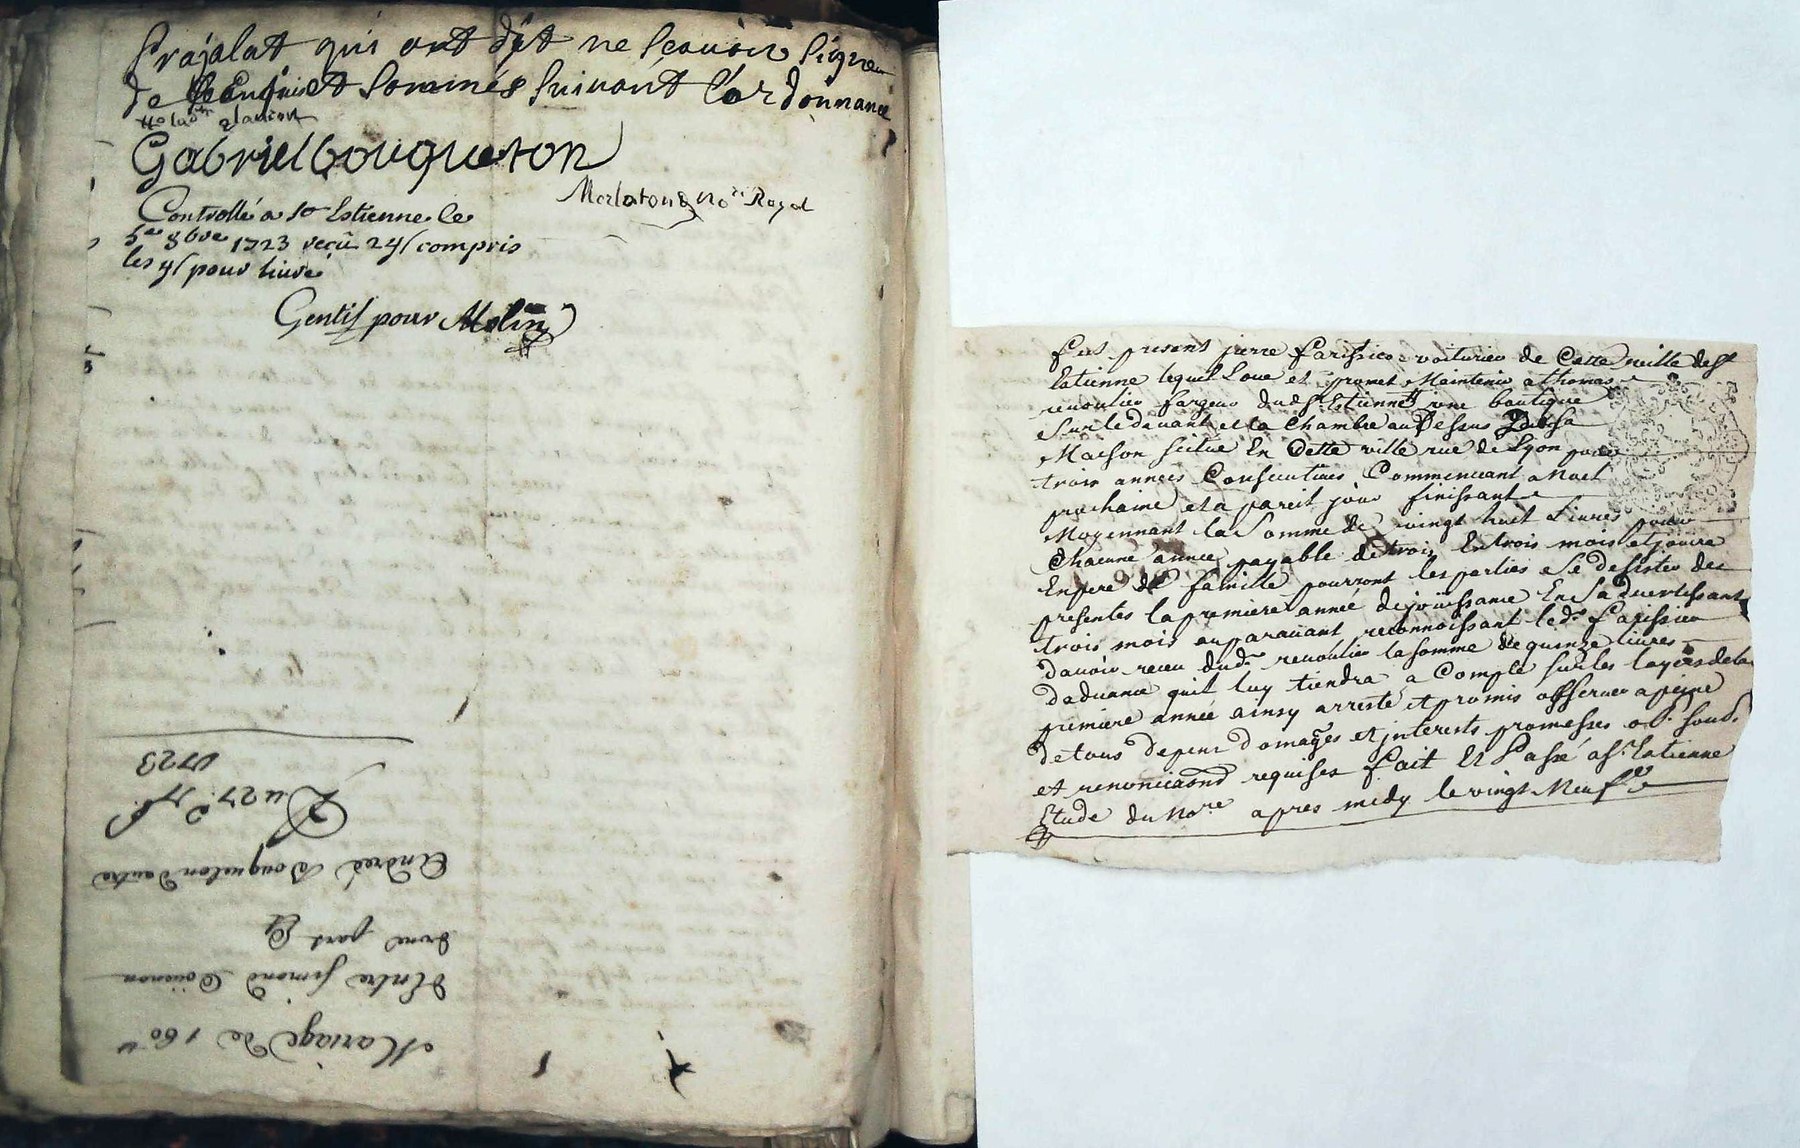 frajalat qui ont dyt ne scavoir signer
de ce enquis et sommés suivant l'ordonnance
Gabriel bouqueton
Merlaton No.re Royal
Controllé a St Estienne le
5e 8bre 1723 receu 24s compris
les 4s pour livre
Gentil pour Molin
Mariage de 160tt
Entre simond
dune part Et
Andreé Bouqueton dautre
Du 27e 7b.
1723
fut present pierre farissieu voiturier de Cette ville de St
Estienne lequel Loue et promet Maintenir a thomas
revoulier fargeur dud St Estienne une boutique
Sur le devant et la Chambre au Dessus De sa
Maison scitue En Cette ville rue de Lyon pour
trois années Consecutives Commencant a Noel
prochaine et a pareil jour finissant
Moyennant la Somme de vingt huit Livres pour
Chacune année payable de trois En trois mois et jouira
En pere de famille pourront les parties se desister des
presentes la premiere année de joüissance En Sadvertissant
trois mois auparavant reconnoissant led. farissieu
davoir receu dud. revoulier la somme de quinze livres
dadvance quil luy tiendra a Compte sur les loyers de la
premiere année ainsy arresté et promis observer a peine
de tous depens domages et interests promesses ob. soub.
et renonciaons requises fait Et Passé a St Estienne
Etude du No.re apres midy le vingt Neuf e